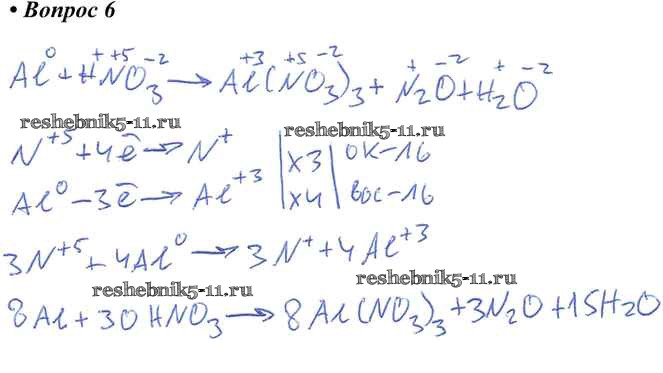 • Вопрос 6
Al⁰ + H⁺N⁺⁵O₃⁻² → Al⁺³(N⁺⁵O₃⁻²)₃ + N₂⁺O⁻² + H₂⁺O⁻²
reshebnik5-11.ru
reshebnik5-11.ru
N⁺⁵ + 4ē → N⁺ | x3 | ок-16
Al⁰ - 3ē → Al⁺³ | x4 | вос-16
3N⁺⁵ + 4Al⁰ → 3N⁺ + 4Al⁺³
reshebnik5-11.ru
reshebnik5-11.ru
8Al + 30HNO₃ → 8Al(NO₃)₃ + 3N₂O + 15H₂O